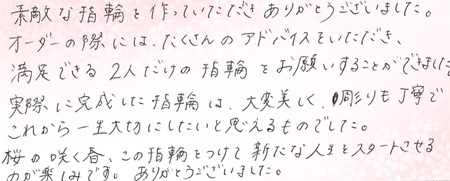 素敵な指輪を作っていただきありがとうございました。
オーダーの際には、たくさんのアドバイスをいただき、
満足できる2人だけの指輪をお願いすることができました
実際に完成した指輪は、大変美しく、彫りも丁寧で
これから一生大切にしたいと思えるものでした。
桜の咲く春、この指輪をつけて新たな人生をスタートさせる
のが楽しみです。ありがとうございました。